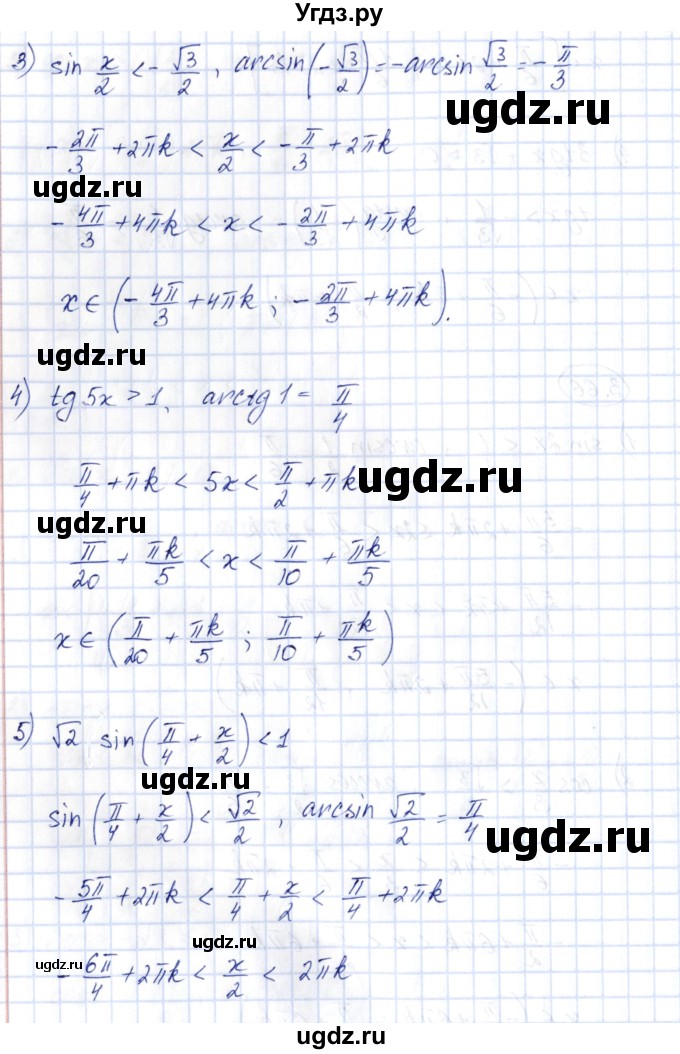 Угдз.ру
3) sin x/2 < -√3/2, arcsin(-√3/2) = -arcsin √3/2 = -π/3
-2π/3 + 2πk < x/2 < -π/3 + 2πk
ugdz.ru
ugdz.ru
-4π/3 + 4πk < x < -2π/3 + 4πk
x ∈ (-4π/3 + 4πk ; -2π/3 + 4πk).
ugdz.ru
4) tg 5x > 1, arctg 1 = π/4
π/4 + πk < 5x < π/2 + πk
ugdz.ru
π/20 + πk/5 < x < π/10 + πk/5
x ∈ (π/20 + πk/5 ; π/10 + πk/5)
5) √2 sin(π/4 + x/2) < 1
ugdz.ru
sin(π/4 + x/2) < √2/2, arcsin √2/2 = π/4
ugdz.ru
-5π/4 + 2πk < π/4 + x/2 < π/4 + 2πk
ugdz.ru
ugdz.ru
-6π/4 + 2πk < x/2 < 2πk
ugdz.ru